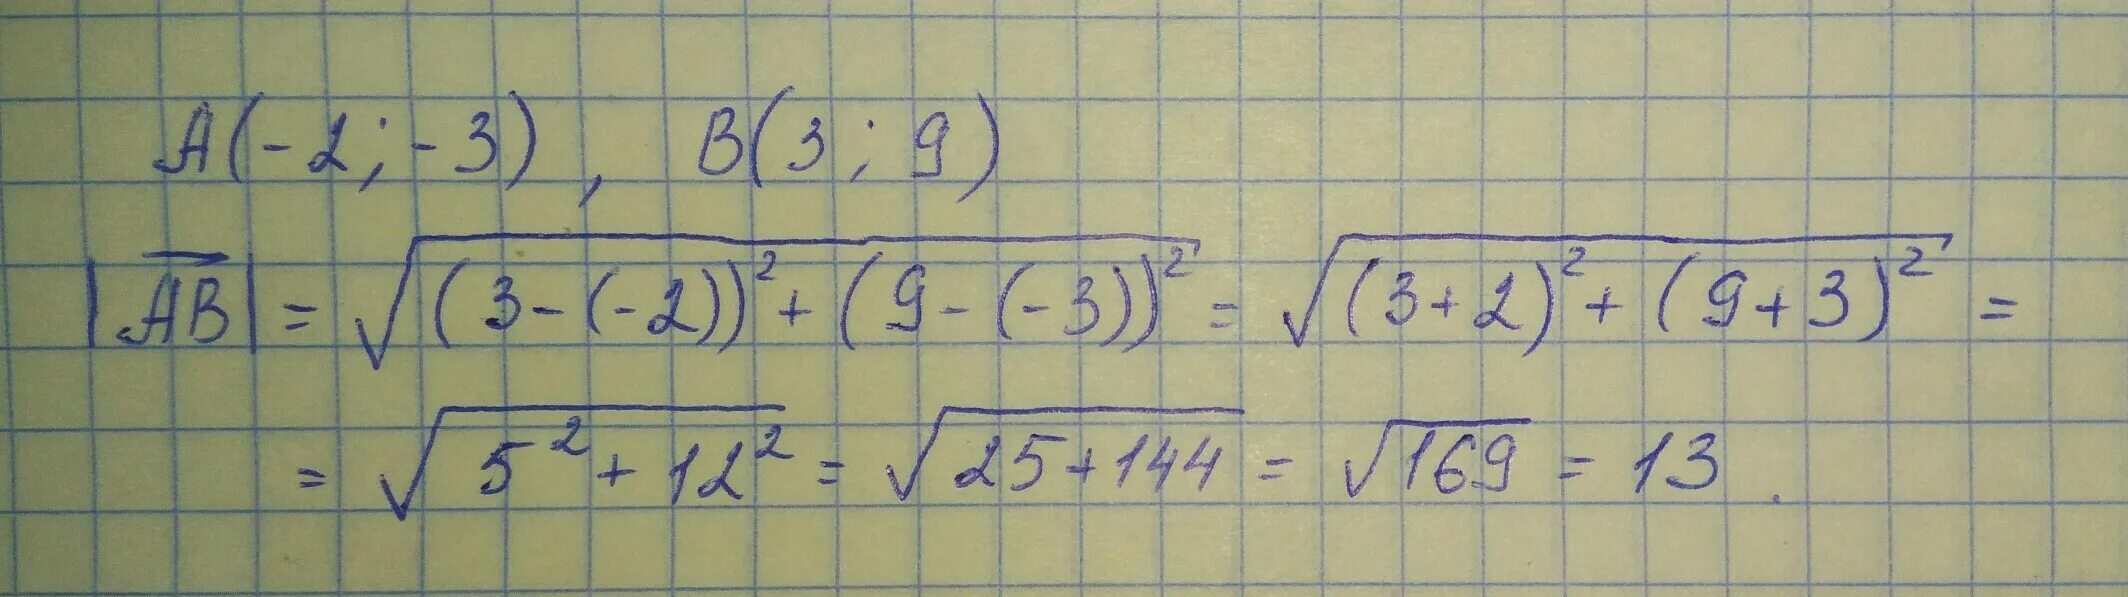 A(-2; -3) , B(3; 9)
|A̅B̅| = √((3-(-2))² + (9-(-3))²) = √((3+2)² + (9+3)²) =
= √(5² + 12²) = √(25+144) = √169 = 13 .